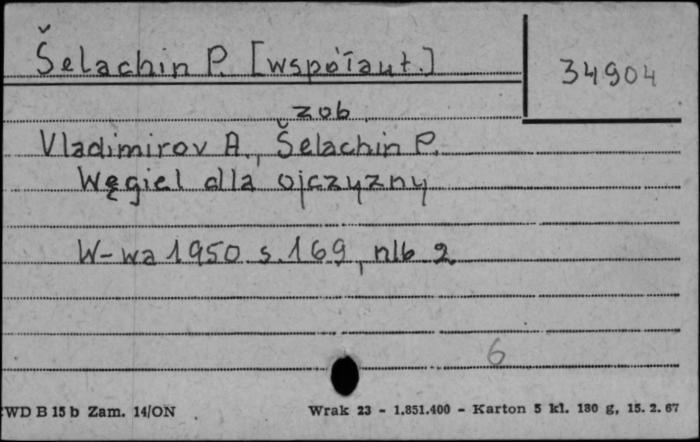 Šelachin P. [współaut.]
34904
zob.
Vladimirov A., Šelachin P.
Węgiel dla ojczyzny
W-wa 1950 s. 169, nlb 2.
6
WD B 15 b Zam. 14/ON
Wrak 23 - 1.851.400 - Karton 5 kl. 180 g, 15. 2. 67